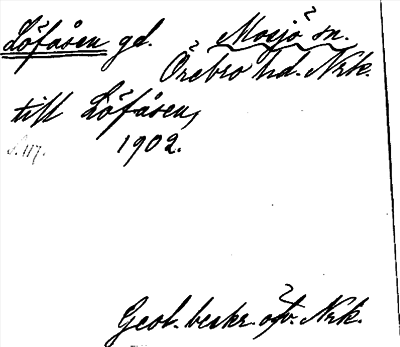 Löfåsen gd. Mosjö sn.
Örebro hd. Nrk.
till Löfåsen,
s. 117. 1902.
Geol. beskr. öfv. Nrk.